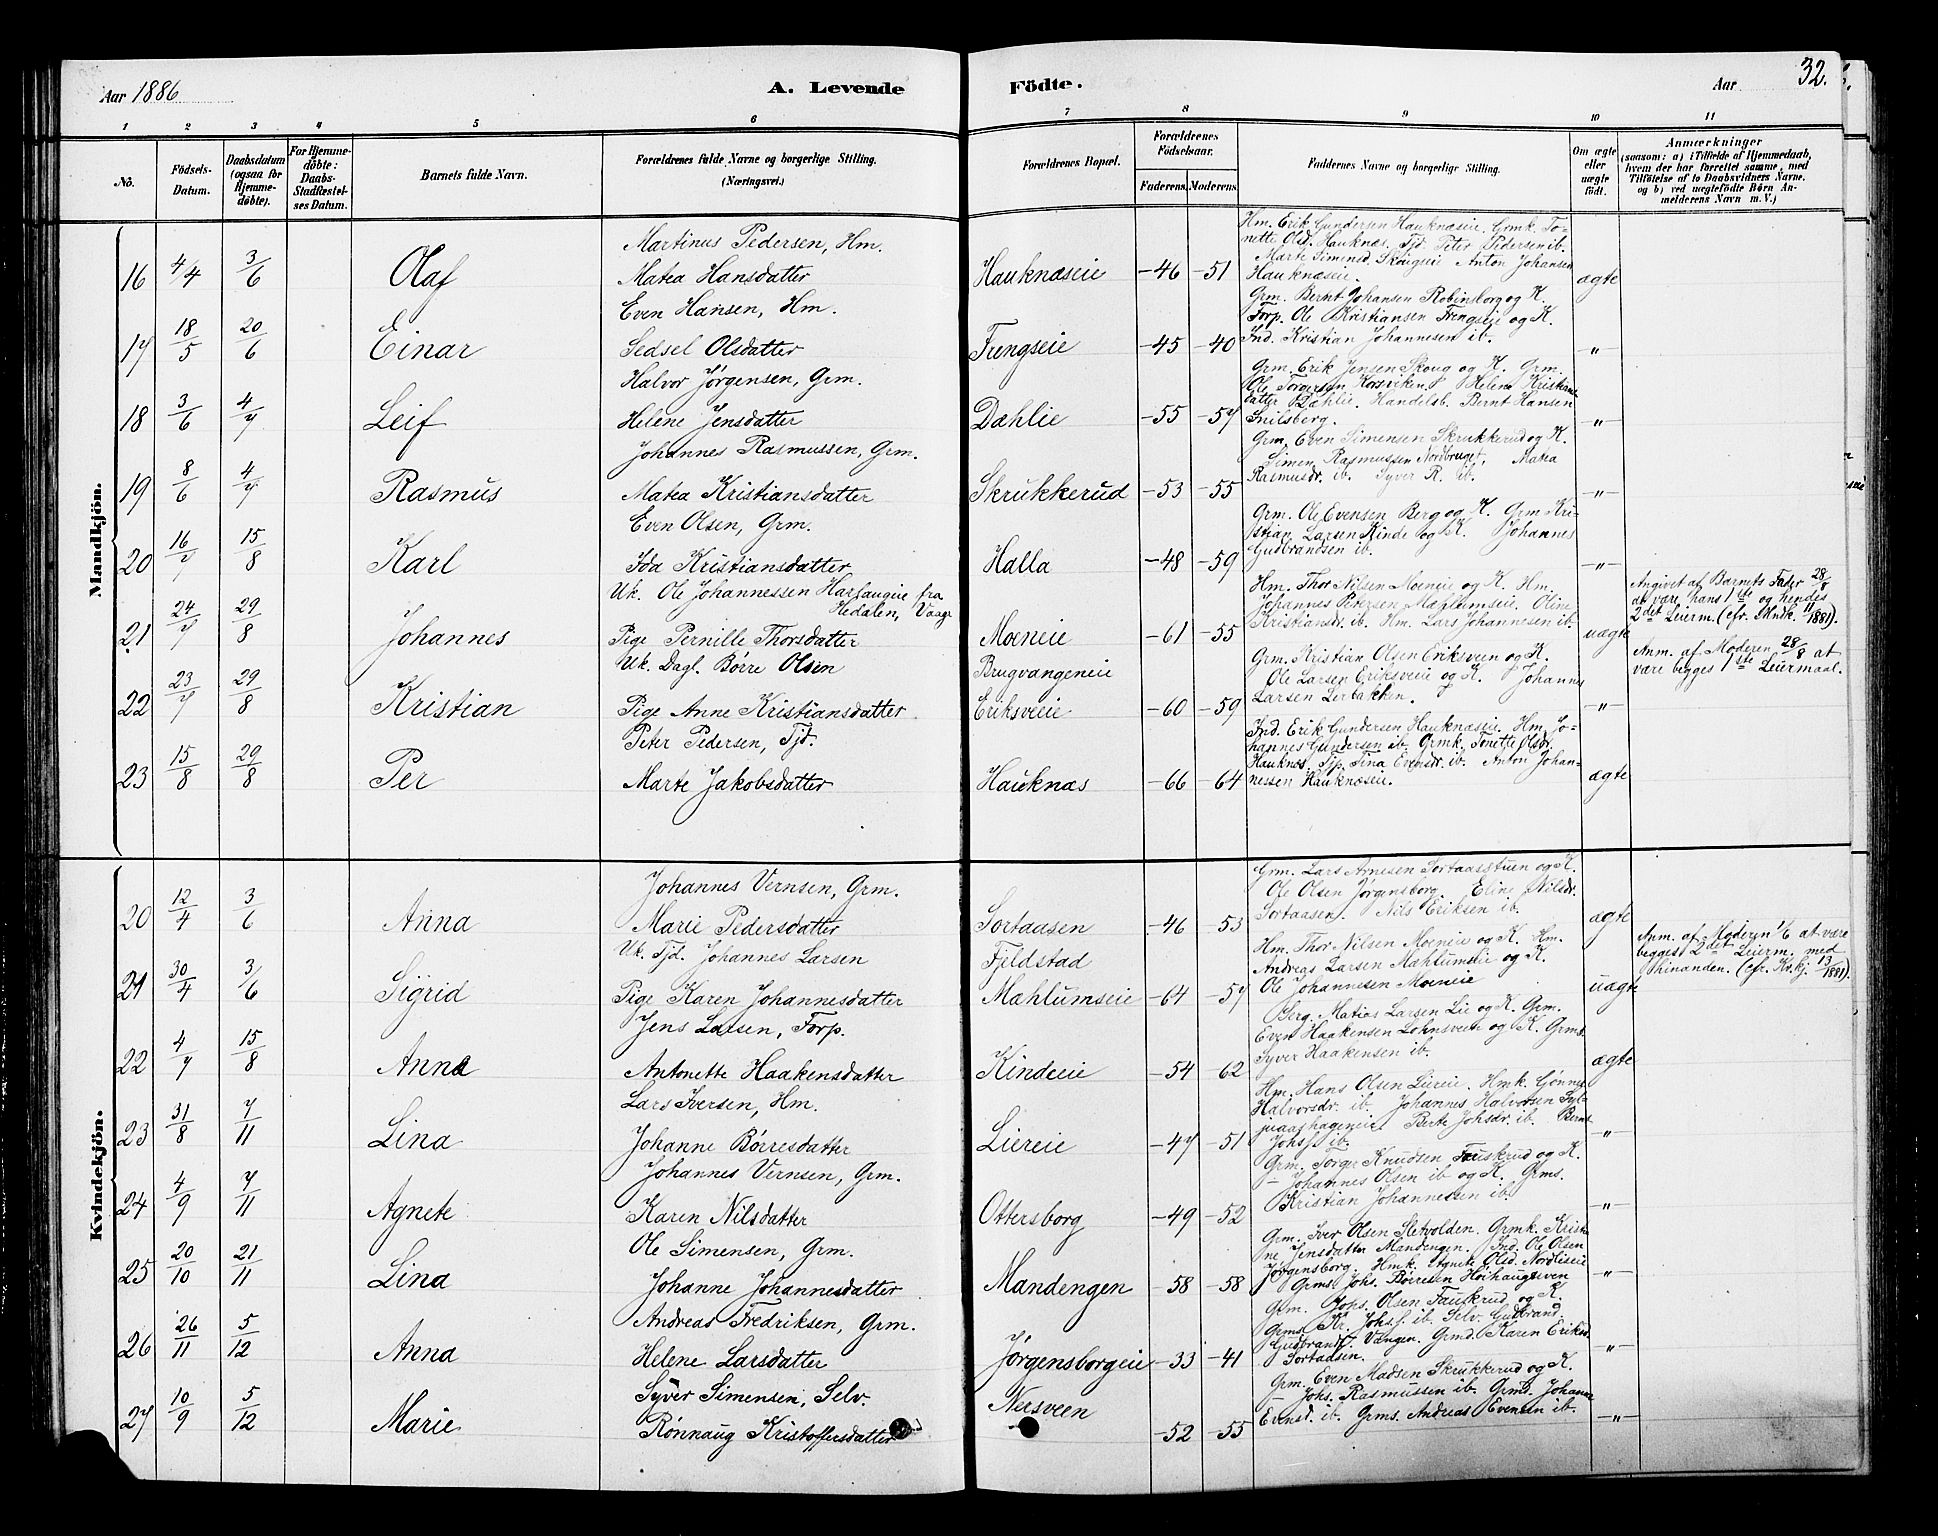 Aar 1886
A. Levende
Födte.
Aar
32.
1 2 3 4 5 6 7 8 9 10 11
No.
Födsels-Datum.
Daabsdatum (ogsaa for Hjemme-döbte).
For Hjemme-döbte: Daabs-Stadfæstel-ses Datum.
Barnets fulde Navn.
Forældrenes fulde Navne og borgerlige Stilling.
(Næringsvei.)
Forældrenes Bopæl.
Forældrenes Födselsaar.
Faderens. Moderens.
Faddernes Navne og borgerlige Stilling.
Om ægte eller uægte födt.
Anmærkninger
(saasom: a) i Tilfælde af Hjemmedaab,
hvem der har forrettet samme, med
Tilföielse af to Daabsvidners Navne.
og b) ved uægtefödte Börn An-
melderens Navn m. V.)
Mandkjön.
Martinus Pedersen, Hm.
16 4/4 3/6 Olaf Matea Hansdatter Hauknæseie -46 -51 ægte
Hm. Erik Gundersen Hauknæseie. Grmk. To-
nette Olsd. Hauknæs. Tjd. Peter Pedersen ib.
Marte Simensd. Skougeie Anton Johansen
Hauknæseie.
Even Hansen, Hm.
17 18/5 20/6 Einar Sedsel Olsdatter Frengseie -45 -40 "
Grm. Bernt Johansen Robinsborg og K.
Forp. Ole Kristiansen Frengseie og K.
Ind. Kristian Johannesen ib.
Halvor Jørgensen, Grm.
18 3/6 4/7 Leif Helene Jensdatter Dæhlie -55 -57 "
Grm. Erik Jensen Skoug og K. Grm.
Ole Torgersen Korsviken. Helene Kristians-
datter Dæhlie. Handelsb. Bernt Hansen
Snilsberg.
Johannes Rasmussen, Grm.
19 8/6 4/7 Rasmus Matea Kristiansdatter Skrukkerud -53 -55 "
Grm. Even Simensen Skrukkerud og K.
Simen Rasmussen Nordbruget. Matea
Rasmusdr. ib. Syver R. ib.
Even Olsen, Grm.
20 16/7 15/8 Karl Ida Kristiansdatter Halla -48 -59 "
Grm. Ole Evensen Berg og K. Grm Kri-
stian Larsen Kinde og K. Johannes
Gudbrandsen ib.
Uk. Ole Johannessen Harlaugeie fra
Hedalen, Vaage
21 24/7 29/8 Johannes Pige Pernille Thorsdatter Moeneie -61 -55 uægte
Hm. Thor Nilsen Moeneie og K. Hm.
Johannes Petersen Mæhlumseie. Oline
Kristiansdr. ib. Hm. Lars Johannesen ib.
Angivet af Barnets Fader 28/8
at være hans 1ste og hendes
2det Leierm. (cfr. Mndk. 11/1881).
Uk. Dagl. Børre Olsen Brugvangeneie
22 23/7 29/8 Kristian Pige Anne Kristiansdatter Eriksveie -60 -59 "
Grm. Kristian Olsen Eriksveen og K.
Ole Larsen Eriksveie og K. Johannes
Larsen Lerbakken.
Anm. af Moderen 28/8 at
være begges 1ste Leiermaal.
Peter Pedersen, Tjd.
23 15/8 29/8 Per Marte Jakobsdatter Hauknæs -66 -64 ægte
Ind. Erik Gundersen Hauknæseie. Hm. Jo-
hannes Gundersen ib. Grmk. Tonette Olsdr.
Hauknæs. Tjp. Tina Evensdr. ib. Anton Johan-
nessen Hauknæseie.
Kvindekjön.
Johannes Vernsen, Grm.
20 12/4 3/6 Anna Marie Pedersdatter Sortaasen -46 -53 ægte
Grm. Lars Arnesen Sortaasstuen og K.
Ole Olsen Jørgensborg. Eline Nilsdr.
Sortaasen. Nils Eriksen ib.
Uk. Tjd. Johannes Larsen Fjeldstad
21 30/4 3/6 Sigrid Pige Karen Johannesdatter Mæhlumseie -64 -57 uægte
Hm. Thor Nilsen Moeneie og K. Hm.
Andreas Larsen Mæhlumseie og K.
Ole Johannesen Moeneie
Anm. af Moderen 1/6 at være
begges 2det Leierm. med
hinanden. (cfr. Kv.kj. 13/1881).
Jens Larsen, Forp.
22 4/7 15/8 Anna Antonette Haakensdatter Kindeeie -54 -62 ægte
Berg. Matias Larsen Lie og K. Grm.
Even Haakensen Lohnsveie og K. Grms.
Syver Haakensen ib.
Lars Iversen, Hm.
23 31/8 7/11 Lina Johanne Børresdatter Liereie -47 -51 "
Hm. Hans Olsen Liereie. Hmk. Gjønner
Halvorsdr. ib. Johannes Halvorsen
Berte Johsdr. ib. Bernt
Johs.s. ib.
Johannes Vernsen, Grm.
24 4/9 7/11 Agnete Karen Nilsdatter Ottersborg -49 -52 "
Grm. Torger Knudsen Fauskrud og K.
– Johannes Olsen ib og K. Grms.
Kristian Johannessen ib.
Ole Simensen, Grm.
25 20/10 21/11 Lina Johanne Johannesdatter Mandengen -58 -58 "
Grm. Iver Olsen Sletvolden. Grmk. Kristi-
ne Jensdatter Mandengen. Ind. Ole Olsen
Jørgensborg. Hmk. Agnete Olsd. Nordlieeie
Grms. Johs. Børresen Høihaugsveen
Andreas Fredriksen, Grm.
26 26/11 5/12 Anna Helene Larsdatter Jørgensborgeie -33 -41 "
Grm. Johs. Olsen Fauskrud og K.
Grms. Kr. Johs.s. ib. Selv. Gudbrand
Gudbrands. Vængen. Grmd. Karen Eriksd.
Sortaasen.
Syver Simensen, Selv.
27 10/9 5/12 Marie Rønnaug Kristoffersdatter Nersveen -52 -55 "
Grm. Even Madsen Skrukkerud og K.
– Johs. Rasmussen ib. Grms. Johann
Evensd. ib. Grms. Andreas Evensen ib.